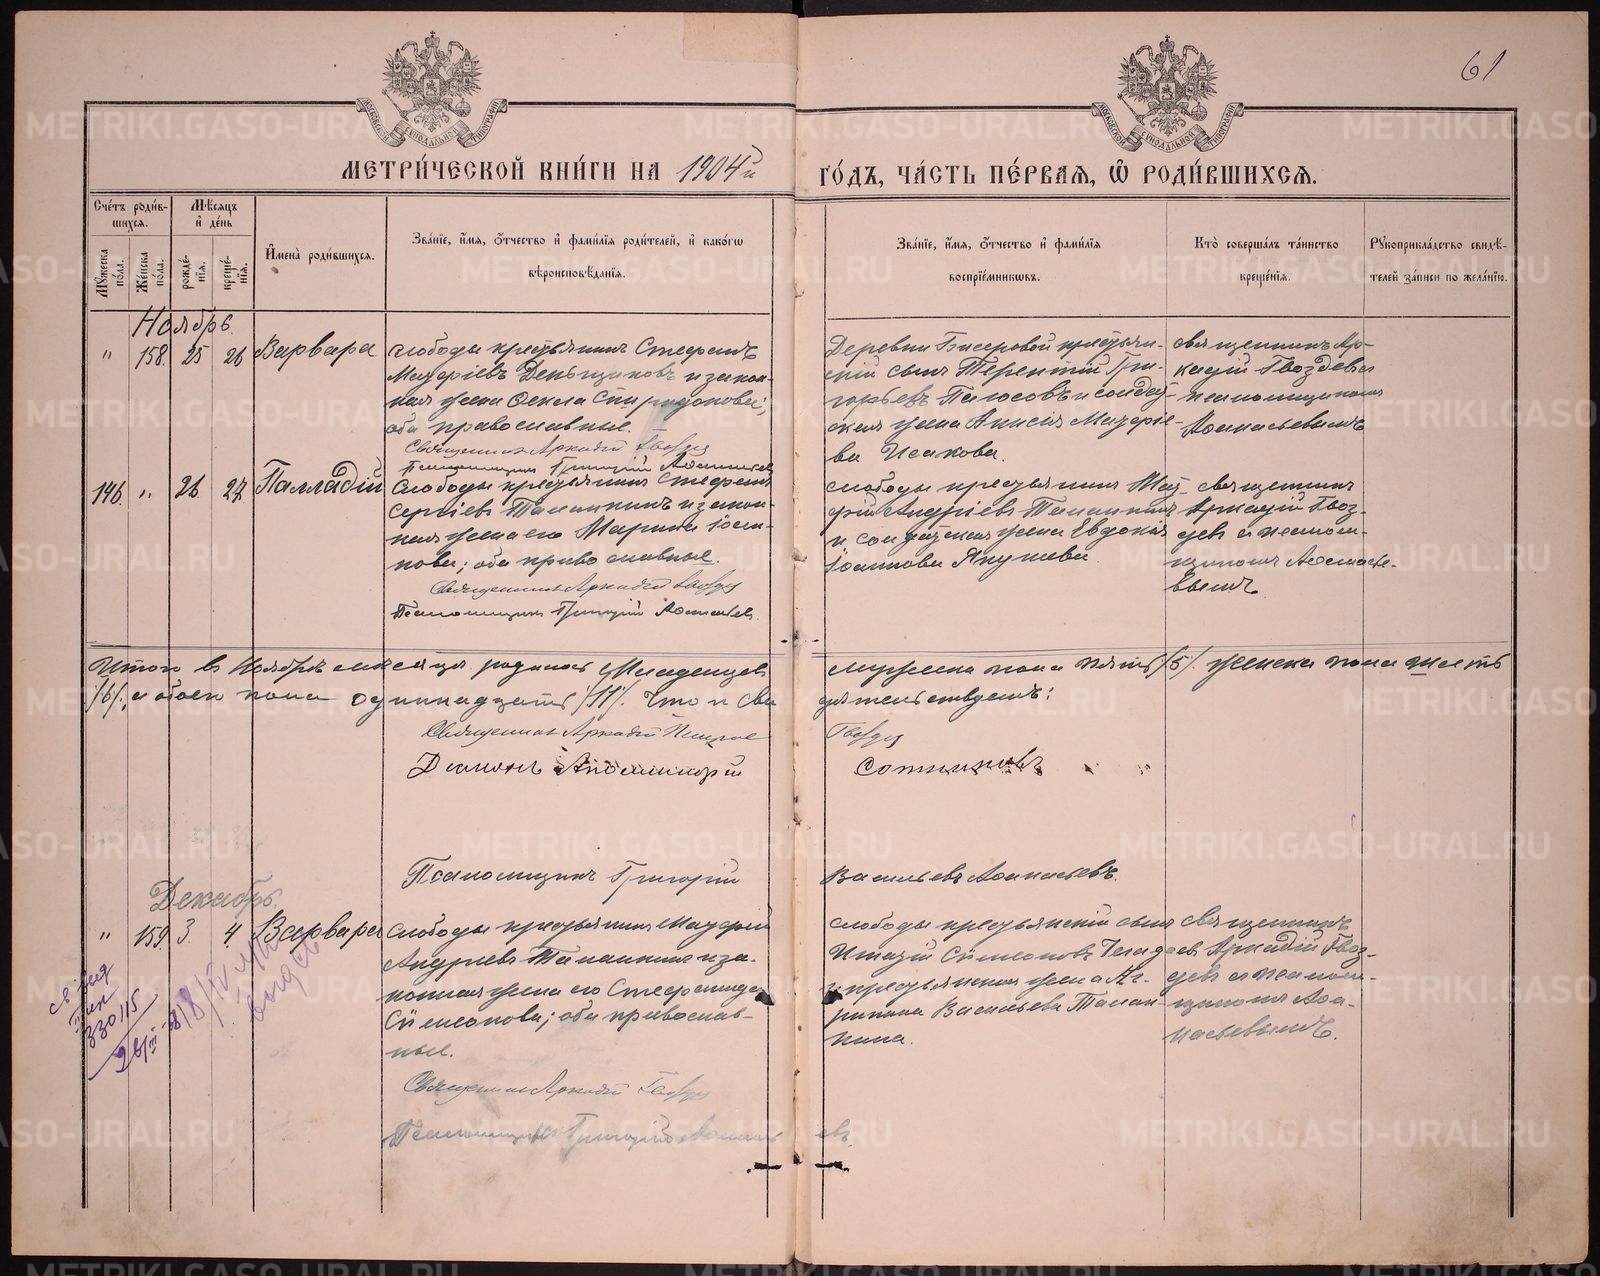 61
МЕТРИ́ЧЕСКОЙ КНИ́ГИ НА 1904й ГО́ДЪ, ЧА́СТЬ ПЕ́РВАЯ, Ѡ РОДИ́ВШИХСЯ.
Сче́тъ роди́в-
шихся.
Мѣ́сяцъ
и҆ де́нь
Мꙋ́жеска по́ла.
Же́нска по́ла.
рожде́-
нїя.
креще́-
нїя.
И҆мена̀ роди́вшихся.
Зва́нїе, и҆́мя, ѻ҆́тчество и҆ фами́лїя роди́телей, и҆ како́гѡ
вѣроисповѣ́данїя.
Зва́нїе, и҆́мя, ѻ҆́тчество и҆ фами́лїя
воспрїе́мниковъ.
Кто̀ соверша́лъ та́инство
креще́нїя.
Рꙋкоприкла́дство свидѣ́-
телей за́писи по жела́нїю.
Ноябрь.
" 158. 25 26 Варвара
Слободы крестьянинъ Стефанъ
Макарiевъ Деньщиковъ и закон-
ная жена Ѳекла Спиридонова;
оба православные.
Священникъ Аркадiй Гвоздев
Псаломщикъ Григорiй Аѳанасьев
Деревни Бисеровой крестьян-
скiй сынъ Терентiй Гри-
горьевъ и солдат-
ская жена Анисiя Макарiе-
ва Исакова.
Священникъ Ар-
кадiй Гвоздевъ с
псаломщикомъ
Аѳанасьевымъ
146. " 26 27. Палладiй
Слободы крестьянинъ Стефанъ
Сергiевъ Таланкинъ и закон-
ная жена его Марина Iоан-
нова; оба православные.
Священникъ Аркадiй Гвоздев
Псаломщикъ Григорiй Аѳанасьев.
Слободы крестьянинъ
Андрiевъ Таланкинъ
и солдатская жена Евдокiя
Iоаннова Якушева
Священникъ
Аркадiй Гвоз-
девъ с псалом-
щикомъ Аѳанасье-
вымъ.
Итого въ Ноябрѣ месяцѣ родилось Младенцевъ мужеска пола пять /5/. женска пола шесть
/6/., а обоего пола одиннадцать /11/. Что и сви детельствуемъ:
Священникъ Аркадiй Петров Гвоздев
Дiаконъ Аполлинарiй Сотниковъ
Псаломщикъ Григорiй Васильевъ Аѳанасьевъ.
Декабрь.
" 159. 3. 4. Варвара
Слободы крестьянинъ Макарiй
Андрiевъ Таланкинъ и за-
конная жена его Стефанида
Сѵмеонова; оба православ-
ные.
Священникъ Аркадiй Гвоздев
Псаломщикъ Григорiй Аѳанасьевъ
Слободы крестьянскiй сынъ
Сѵмеоновъ
и крестьянская жена Аг-
рипина Васильева Талан-
кина.
Священникъ
Аркадiй Гвоз-
девъ с псалом-
щикомъ Аѳа-
насьевымъ.